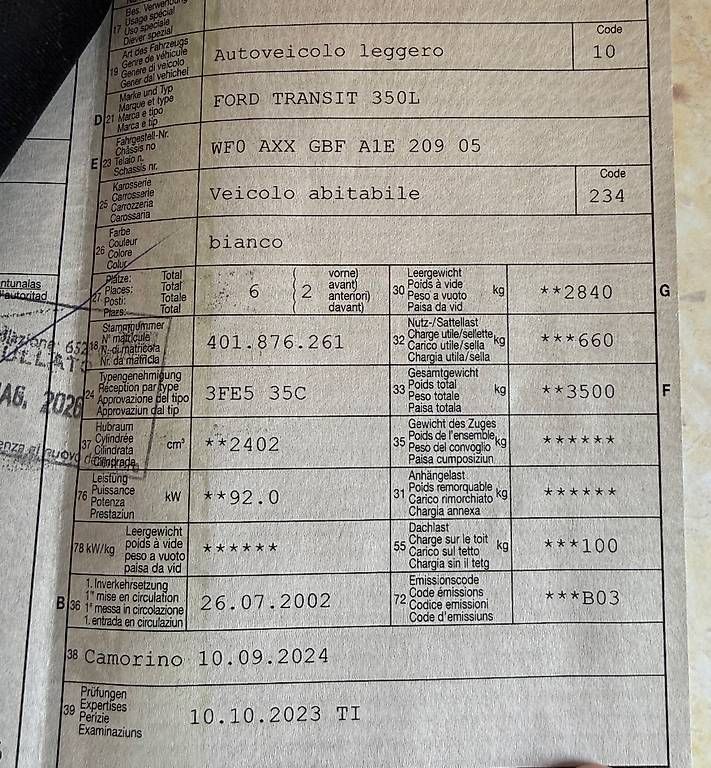 Bes. Verwendung
17 Usage spécial
Uso speciale
Diever spezial
Art des Fahrzeugs
Genre de véhicule
19 Genere di veicolo
Gener dal vehichel
Autoveicolo leggero
Code
10
Marke und Typ
Marque et type
D 21 Marca e tipo
Marca e tip
FORD TRANSIT 350L
Fahrgestell-Nr.
Châssis no
E 23 Telaio n.
Schassis nr.
WF0 AXX GBF A1E 209 05
Karosserie
Carrosserie
25 Carrozzeria
Carossaria
Veicolo abitabile
Code
234
Farbe
26 Couleur
Colore
Colur
bianco
Plätze: Total
Places: Total
27 Posti: Totale
Plazs: Total
6
2
vorne)
avant)
anteriori)
davant)
Leergewicht
30 Poids à vide kg
Peso a vuoto
Paisa da vid
**2840
G
Stammnummer
18 N° matricule
N. di matricola
Nr. da matricla
401.876.261
Nutz-/Sattellast
32 Charge utile/sellette kg
Carico utile/sella
Chargia utila/sella
***660
Typengenehmigung
24 Réception par type
Approvazione del tipo
Approvaziun dal tip
3FE5 35C
Gesamtgewicht
33 Poids total kg
Peso totale
Paisa totala
**3500
F
Hubraum
37 Cylindrée cm³
Cilindrata
Cilindrada
**2402
Gewicht des Zuges
35 Poids de l'ensemble kg
Peso del convoglio
Paisa cumposiziun
******
Leistung
76 Puissance kW
Potenza
Prestaziun
**92.0
Anhängelast
31 Poids remorquable kg
Carico rimorchiato
Chargia annexa
******
Leergewicht
78 kW/kg poids à vide
peso a vuoto
paisa da vid
******
Dachlast
55 Charge sur le toit kg
Carico sul tetto
Chargia sin il tetg
***100
1. Inverkehrsetzung
B 36 1re mise en circulation
1a messa in circolazione
1. entrada en circulaziun
26.07.2002
Emissionscode
72 Code émissions
Codice emissioni
Code d'emissiuns
***B03
38 Camorino 10.09.2024
Prüfungen
39 Expertises
Perizie
Examinaziuns
10.10.2023 TI
AG. 2026